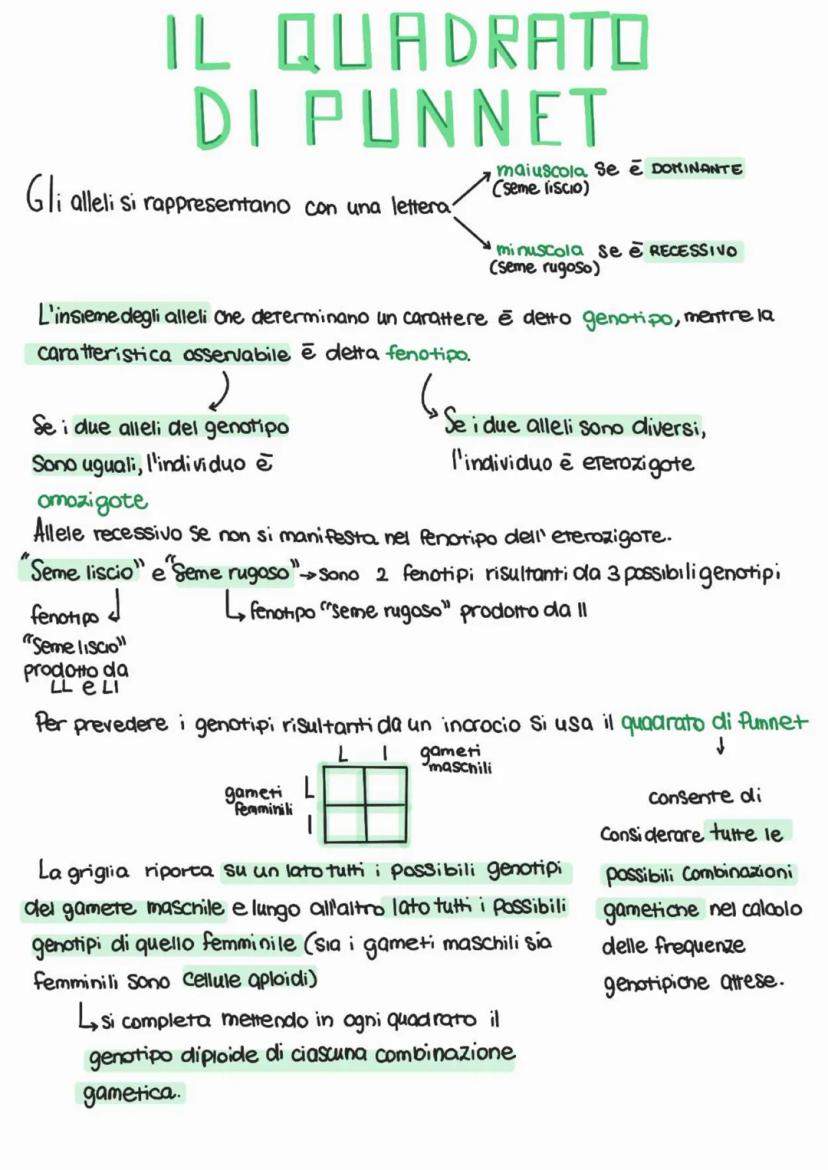 IL QUADRATO
DI PUNNET
Gli alleli si rappresentano con una lettera
maiuscola se ē DOMINANTE
(seme liscio)
minuscola se ē RECESSIVO
(seme rugoso)
L'insieme degli alleli che determinano un carattere ē detto genotipo, mentre la
caratteristica osservabile ē detta fenotipo.
Se i due alleli del genotipo
sono uguali, l'individuo ē
omozigote
Se i due alleli sono diversi,
l'individuo ē eterozigote
Allele recessivo se non si manifesta nel fenotipo dell'eterozigote.
"Seme liscio" e "seme rugoso" → sono 2 fenotipi risultanti da 3 possibili genotipi
fenotipo
"seme liscio"
prodotto da
LL e Ll
fenotipo "seme rugoso" prodotto da ll
Per prevedere i genotipi risultanti da un incrocio si usa il quadrato di Punnet
L l
gameti
maschili
gameti
femminili
L
l
consente di
considerare tutte le
possibili combinazioni
gametiche nel calcolo
delle frequenze
genotipiche attese.
La griglia riporta su un lato tutti i possibili genotipi
del gamete maschile e lungo all'altro lato tutti i possibili
genotipi di quello femminile (sia i gameti maschili sia
femminili sono cellule aploidi)
si completa mettendo in ogni quadrato il
genotipo diploide di ciascuna combinazione
gametica.